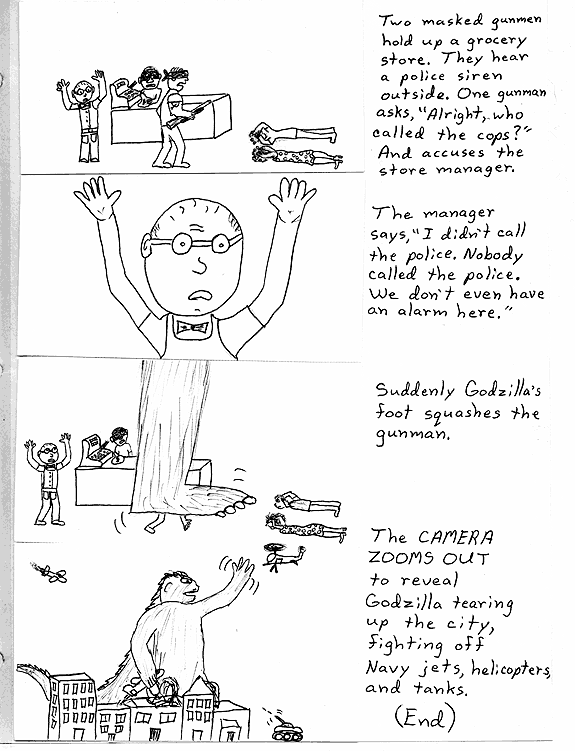 Two masked gunmen
hold up a grocery
store. They hear
a police siren
outside. One gunman
asks, "Alright, who
called the cops?"
And accuses the
store manager.
The manager
says, "I didn't call
the police. Nobody
called the police.
We don't even have
an alarm here."
Suddenly Godzilla's
foot squashes the
gunman.
The CAMERA
ZOOMS OUT
to reveal
Godzilla tearing
up the city,
fighting off
Navy jets, helicopters,
and tanks.
(End)